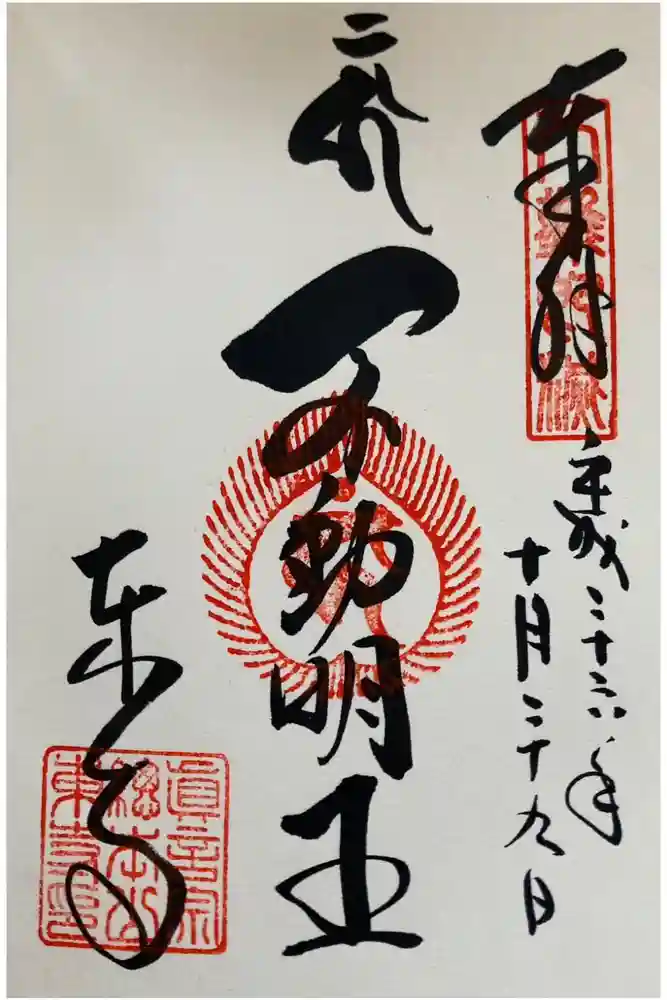 奉拝
平成二十六年
十月二十九日
不動明王
東寺
眞言宗
總本山
東寺印